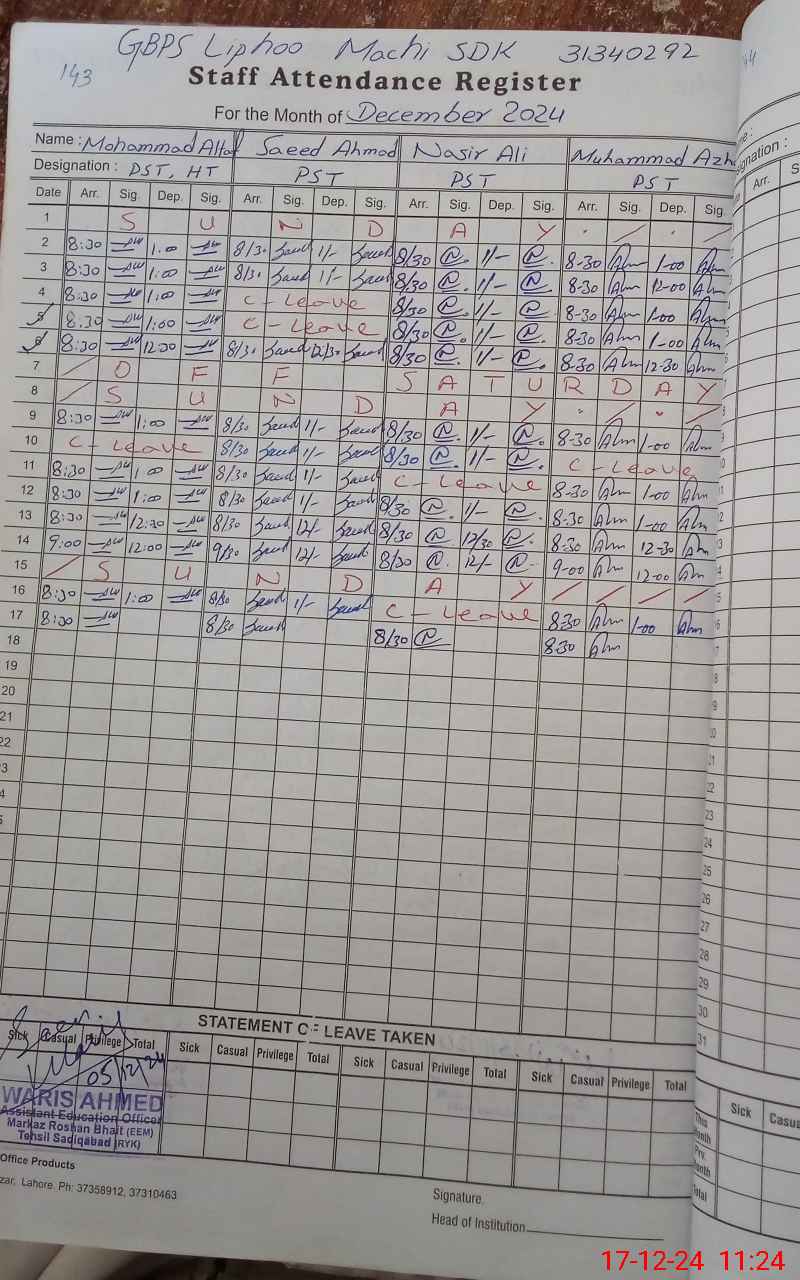 GBPS Liphoo Machi SDK 31340292
143
Staff Attendance Register
For the Month of December 2024
Name : Mohammad Altaf Saeed Ahmad Nasir Ali Muhammad Azh
Designation : PST, HT PST PST PST
Date Arr. Sig. Dep. Sig. Arr. Sig. Dep. Sig. Arr. Sig. Dep. Sig. Arr. Sig. Dep. Sig.
1 S U N D A Y
2 8:30 1:00 8/30 Saeed 1/- Saeed 8/30 1/- 8-30 1-00
3 8:30 1:00 8/30 Saeed 1/- Saeed 8/30 1/- 8-30 12-00
4 8:30 1:00 C-Leave 8/30 1/- 8-30 1-00
5 8:30 1:00 C-Leave 8/30 1/- 8-30 1-00
6 8:30 12:30 8/30 Saeed 12/30 Saeed 8/30 1/- 8-30 12-30
7 O F F S A T U R D A Y
8 S U N D A Y
9 8:30 1:00 8/30 Saeed 1/- Saeed 8/30 1/- 8-30 1-00
10 C-Leave 8/30 Saeed 1/- Saeed 8/30 1/- C-Leave
11 8:30 1:00 8/30 Saeed 1/- Saeed C-Leave 8-30 1-00
12 8:30 1:00 8/30 Saeed 1/- Saeed 8/30 1/- 8-30 1-00
13 8:30 12:30 8/30 Saeed 12/- Saeed 8/30 12/30 8-30 12-30
14 9:00 12:00 9/30 Saeed 12/- Saeed 8/30 12/- 9-00 12-00
15 S U N D A Y
16 8:30 1:00 8/30 Saeed 1/- Saeed C-Leave 8-30 1-00
17 8:30 8/30 Saeed 8/30 8-30
18
19
20
21
22
STATEMENT OF LEAVE TAKEN
Sick Casual Privilege Total Sick Casual Privilege Total Sick Casual Privilege Total Sick Casual Privilege Total
05/12/24
WARIS AHMED
Assistant Education Officer
Markaz Roshan Bhait (EEM)
Tehsil Sadiqabad (RYK)
Office Products
zar, Lahore. Ph: 37358912, 37310463
Signature.
Head of Institution
Arr.
23
24
25
26
27
28
29
30
31
Sick Casu
This Month
Prv. Month
Total
17-12-24 11:24